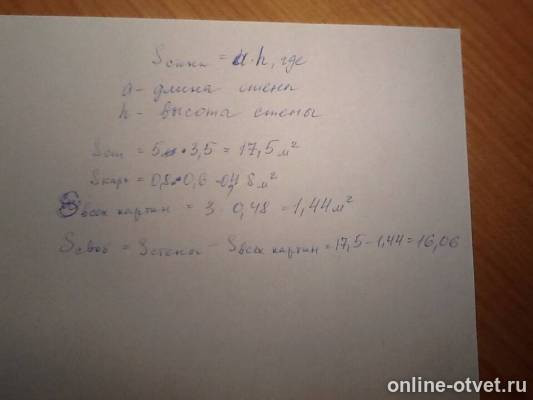 S стены = a · h, где
a - длина стены
h - высота стены
S ст = 5 · 3,5 = 17,5 м²
S карт = 0,8 · 0,6 = 0,48 м²
S всех картин = 3 · 0,48 = 1,44 м²
S своб = S стены - S всех картин = 17,5 - 1,44 = 16,06
online-otvet.ru